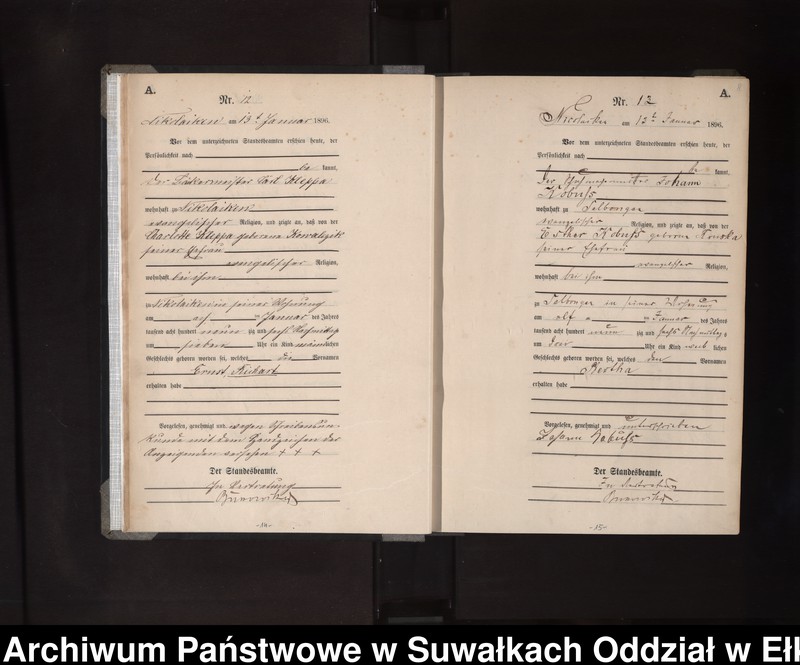 A.
Nr. 12
Nikolaiken am 13t Januar 1896.
Vor dem unterzeichneten Standesbeamten erschien heute, der
Persönlichkeit nach
be kannt,
der Carl Kleppa
wohnhaft zu Nikolaiken
evangelischer Religion, und zeigte an, daß von der
Charlotte Kleppa geborene Kowalzik
seiner Ehefrau
evangelischer Religion,
wohnhaft bei ihm
zu Nikolaiken in seiner Wohnung
am Januar des Jahres
tausend acht hundert neun zig und sechs Nachmittags
um sieben Uhr ein Kind männlichen
Geschlechts geboren worden sei, welches die Vornamen
Ernst Richart
erhalten habe
Vorgelesen, genehmigt und wegen Schreibensun-
kunde mit dem Handzeichen des
Anzeigenden versehen + + +
Der Standesbeamte.
In Vertretung
-14-
A.
Nr. 13
Nicolaiken am 13t Januar 1896.
Vor dem unterzeichneten Standesbeamten erschien heute, der
Persönlichkeit nach
be kannt,
Der Johann
Kobuss
wohnhaft zu Selbongen
evangelischer Religion, und zeigte an, daß von der
Esther Kobuss geborene
seiner Ehefrau
evangelischer Religion,
wohnhaft bei ihm
zu Selbongen in seiner Wohnung
am elf Januar des Jahres
tausend acht hundert neun zig und sechs Nachmittags
um drei Uhr ein Kind weib lichen
Geschlechts geboren worden sei, welches den Vornamen
Bertha
erhalten habe
Vorgelesen, genehmigt und unterschrieben
Johann Kobuss
Der Standesbeamte.
In Vertretung
-15-
Archiwum Państwowe w Suwałkach Oddział w Ełk